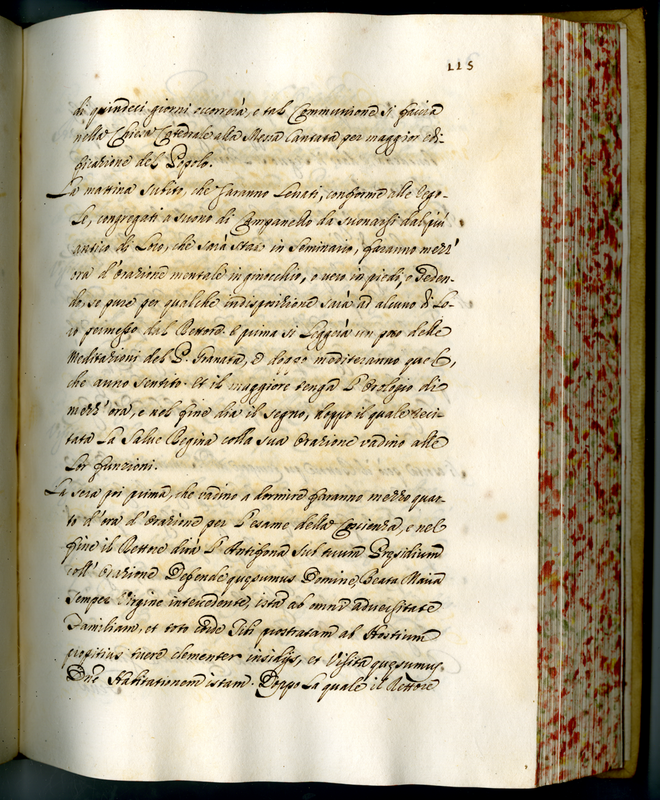 115
di quindeci giorni occorrerà, e tal Communione si faccia
nella Chiesa Catedrale alla Messa Cantata per maggior edi-
ficazione del Popolo.
La mattina subito, che saranno levati, conforme alle rego-
le, congregati a suono di Campanello da suonarsi dal più
antico di loro, che sarà stato in Seminario, faranno mezz'
ora d'orazione mentale in ginocchio, o vero in piedi, o seden-
do, se pure per qualche indisposizione sarà ad alcuno di lo-
ro permesso dal Rettore e prima si leggerà un poco delle
Meditazioni del P. Granata, e doppo mediteranno quello,
che anno sentito. Et il maggiore tenga l'Orologio di
mezz'ora, e nel fine dia il segno, doppo il quale reci-
tata la Salve Regina colla sua orazione vadino alle
lor funzioni.
La sera poi prima, che vadino a dormire faranno mezzo quar-
to d'ora d'orazione per l'esame della Coscienza, e nel
fine il Rettore dirà l'Antifona Sub tuum Præsidium
coll'orazione Defende quęsumus Domine, Beata Maria
semper Virgine intercedente, istā ab omni adversitate
Familiam, et toto corde Tibi prostratam ab Hostium
propitius tuere clementer insidijs, et Visita quęsumus
Dnē Habitationem istam. Doppo la quale il Rettore